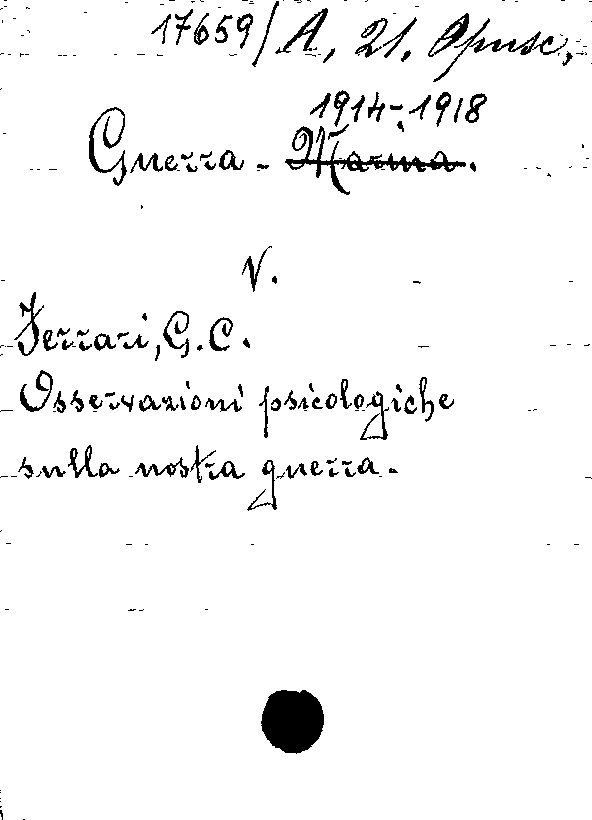 17659/A, 21. Opusc,
1914-1918
Guerra - Marina.
V.
Ferrari, G. C.
Osservazioni psicologiche
sulla nostra guerra.